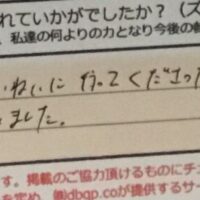 れていかがでしたか？（ズ
私達の何よりの力となり今後の
いねいに行ってくださっ
ました。
す。掲載のご協力頂けるものにチ
を定め、㈱dbgp.coが提供するサー